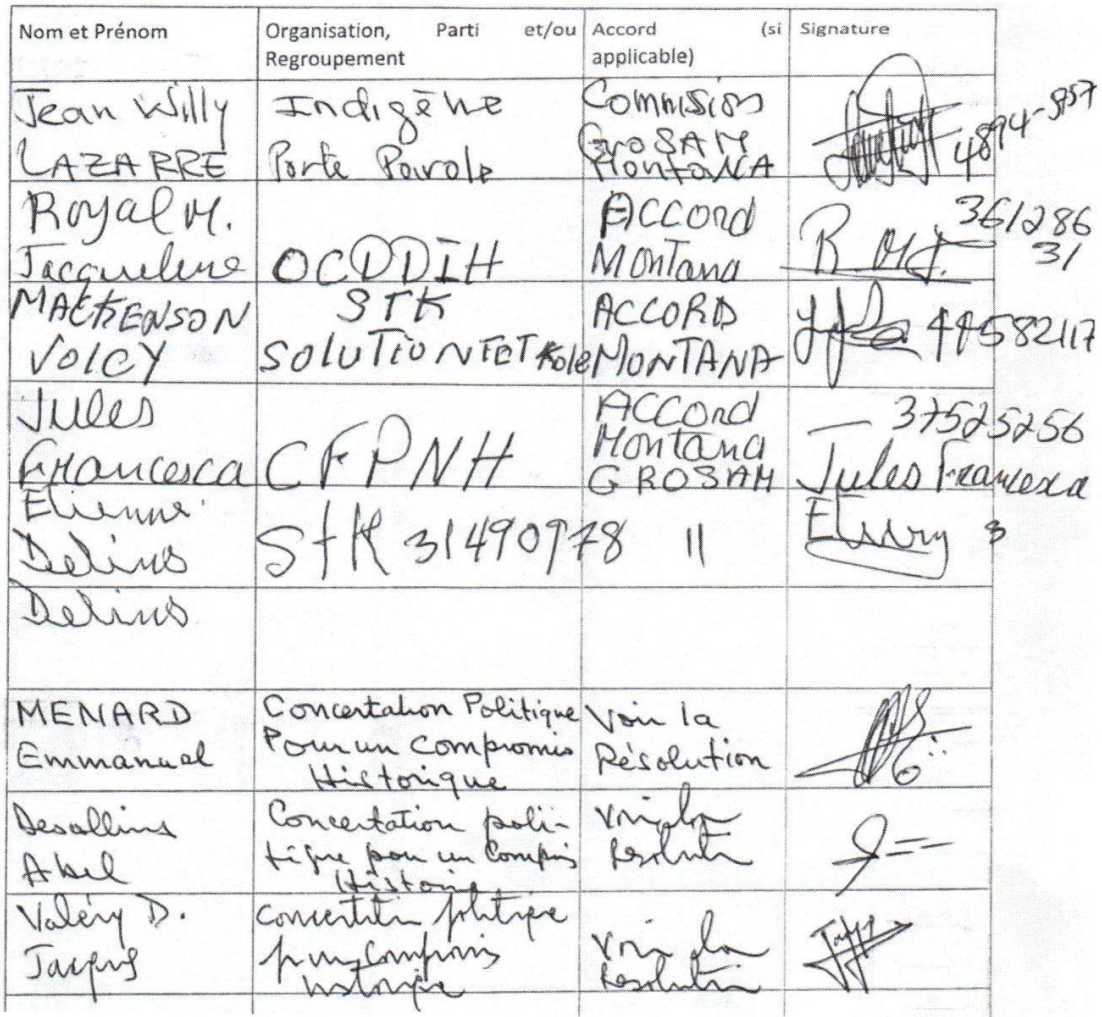 Nom et Prénom
Organisation, Parti et/ou Regroupement
Accord (si applicable)
Signature
Jean Willy
LAZARRE
Indigène
Porte Parole
Commision
GROSAM
MontaNA
4894-
Royal M.
Jacqueline
OCDDIH
Accord
Montana
R M J.
361286
31
MACKENSON
VOLCY
STK
SOLUTION TET Kole
ACCORD
MONTANA
44582117
Jules
Francesca
CFPNH
Accord
Montana
GROSAM
37525256
Jules Francesca
Etienne
Delinus
StK 31490978
"
8
Delinus
MENARD
Emmanuel
Concertation Politique
Pour un Compromis
Historique
Voir la
Résolution
Desallins
Abel
Concertation poli-
tique pour un Compris
Histori
Voir la
Resoluti
Valéry D.
Jacques
concertation politique
pour un Compromis
historique
Voir la
Resolution